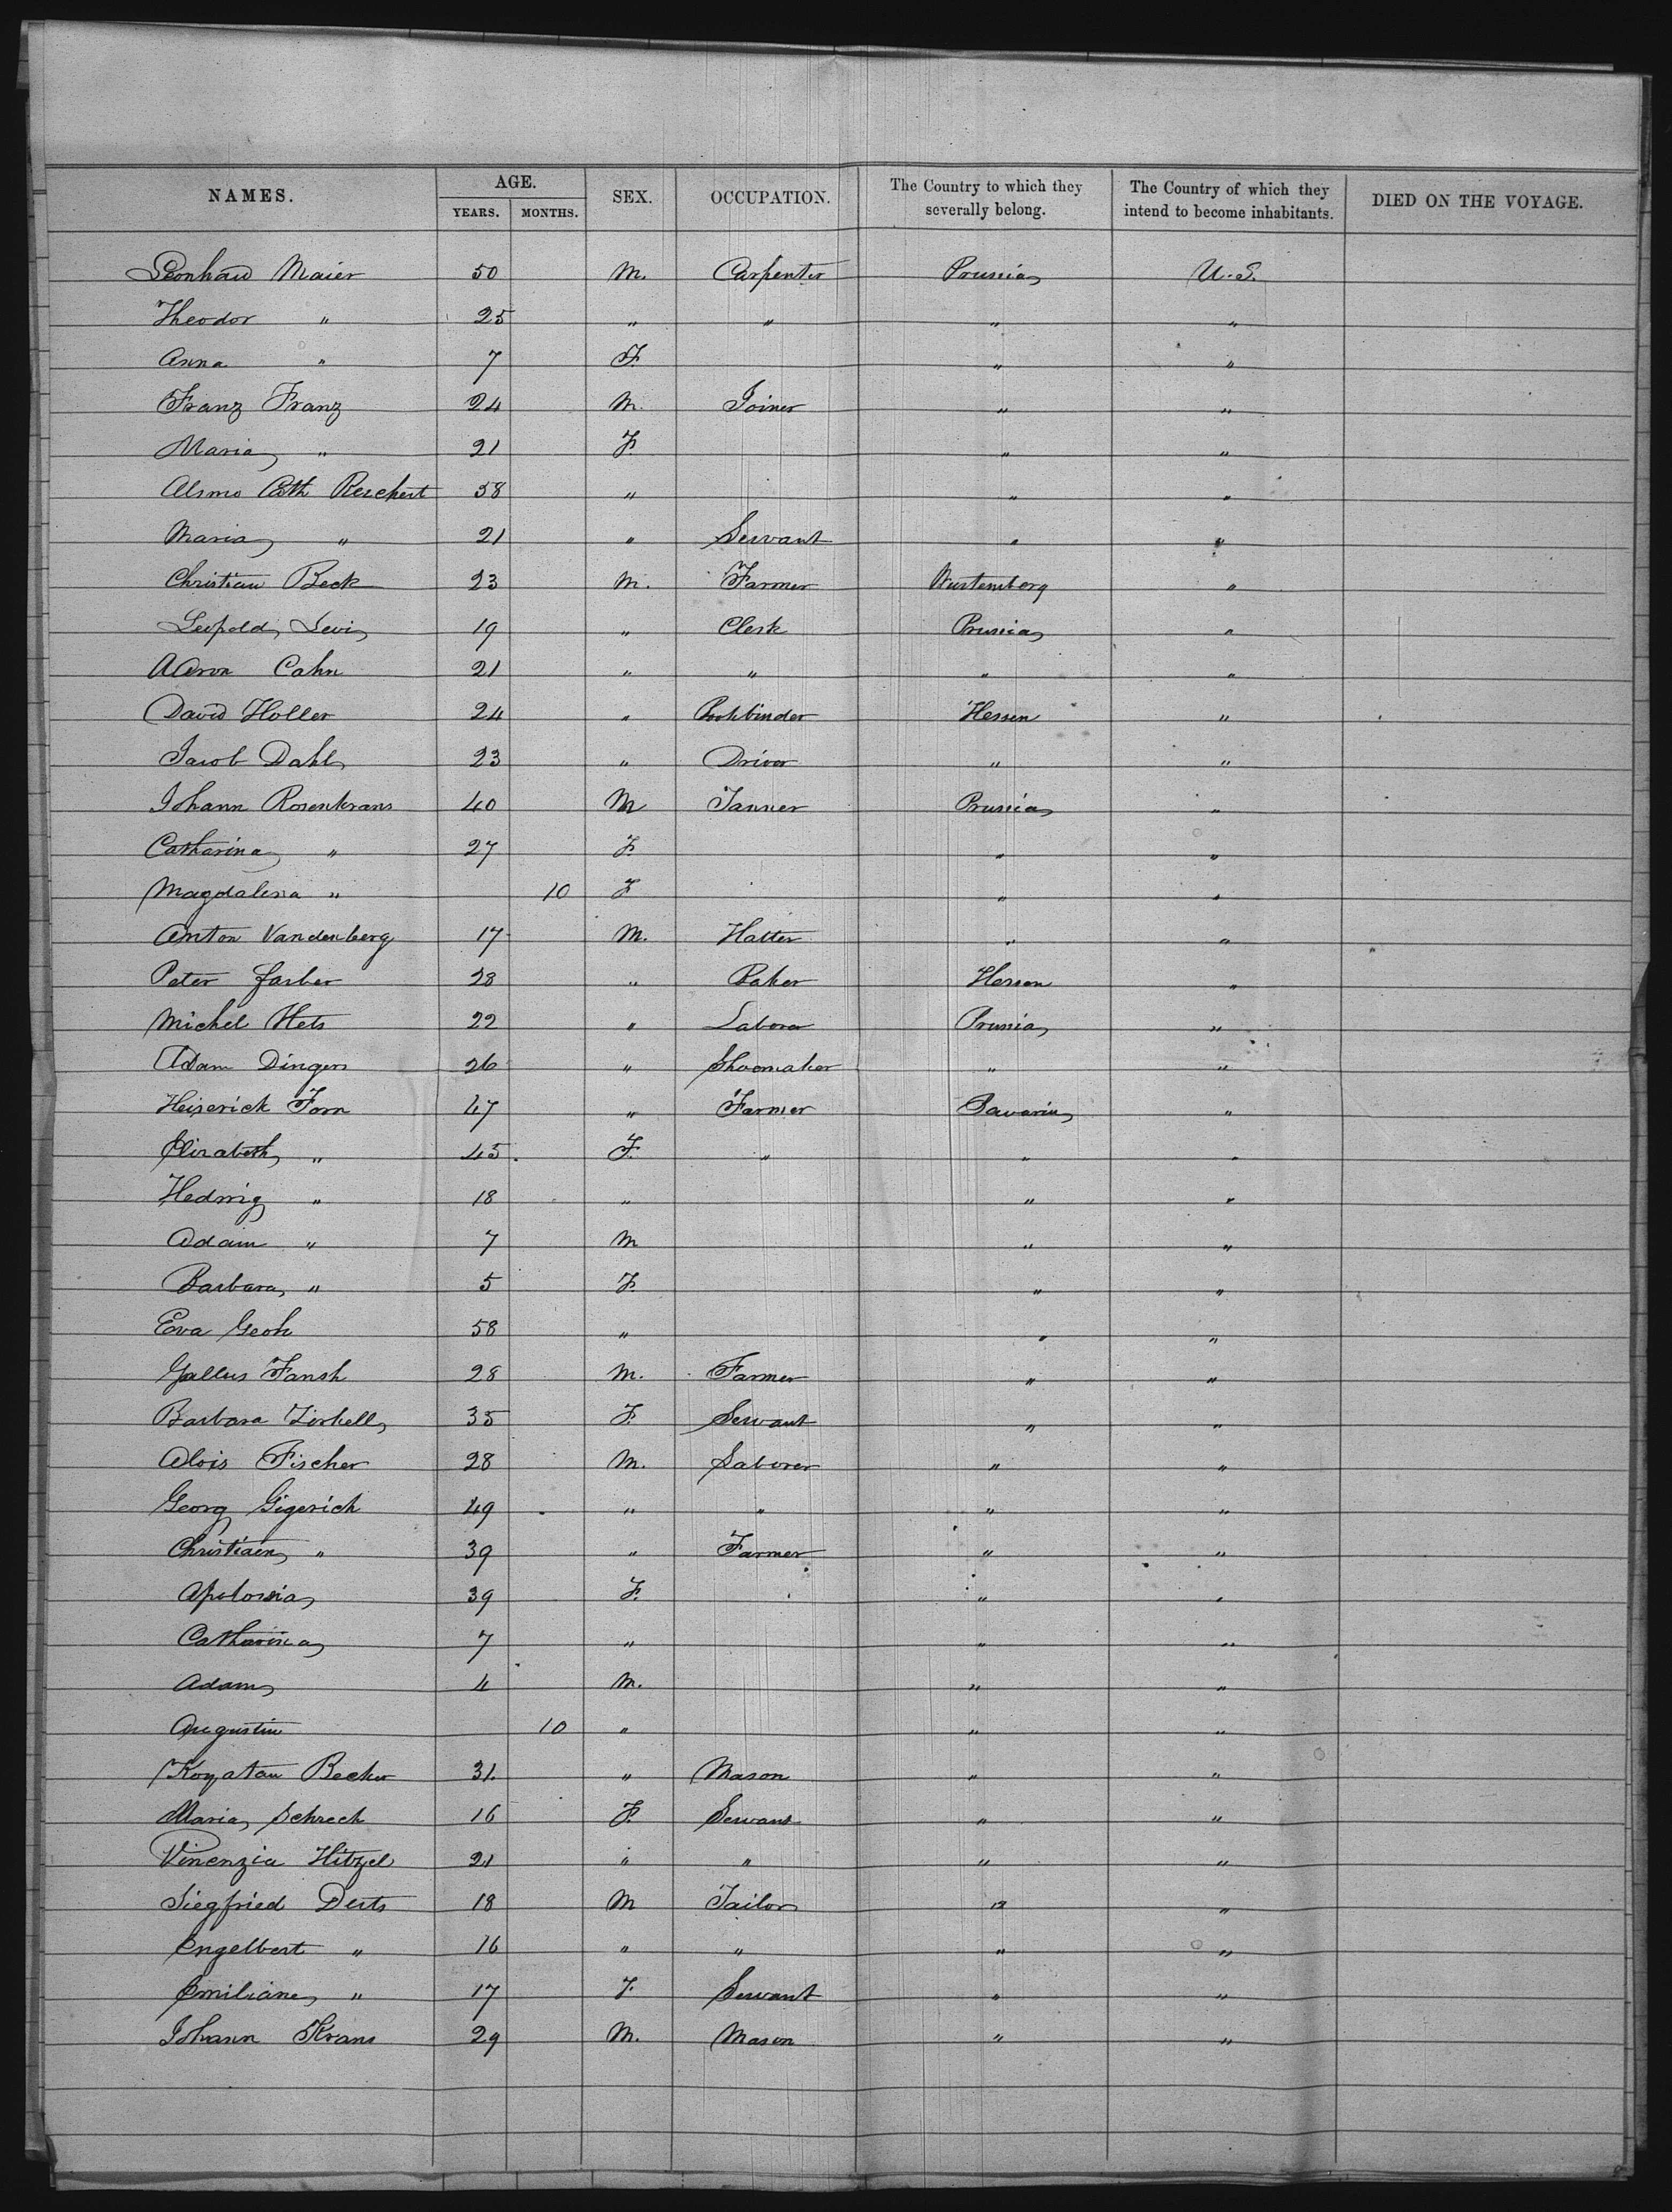 NAMES. AGE. SEX. OCCUPATION. The Country to which they severally belong. The Country of which they intend to become inhabitants. DIED ON THE VOYAGE.
YEARS. MONTHS.
Leonhard Maier 50 M. Carpenter Prussia U.S.
Theodor " 25 " " " "
Anna " 7 F. " "
Franz Franz 24 M. Joiner " "
Maria " 21 F. " "
Cath Reichert 58 " " "
Maria " 21 " Servant " "
Christian Beck 23 M. Farmer Wurtemberg "
Leopold Levi 19 " Clerk Prussia "
Aaron Cahn 21 " " " "
David Holler 24 " Bookbinder Hessen "
Jacob Dahl 23 " Driver " "
Johann Rosenkrans 40 M Tanner Prussia "
Catharina " 27 F. " "
Magdalena " 10 F " "
Anton Vandenberg 17 M. Hatter " "
Peter Farber 28 " Baker Hessen "
Michel Hets 22 " Labora Prussia "
Adam Dingers 26 " Shoemaker " "
Heiserick Forn 47 " Farmer Bavaria "
Elizabeth " 45. F. " " "
Hedwig " 18 " " "
Adam " 7 M " "
Barbara " 5 F. " "
Eva Geoh 58 " " "
Gallus Fansh 28 M. Farmer " "
Barbara 35 F. Servant " "
Alois Fischer 28 M. Laborer " "
Georg Gigerich 49 " " " "
Christian " 39 " Farmer " "
Apolonia 39 F. " "
Catharina 7 " " "
Adam 4 M. " "
Augustin 10 " " "
Becker 31. " Mason " "
Maria Schreck 16 F. Servant " "
Vinenzia Hitzel 21 " " " "
Siegfried Deits 18 M Tailor " "
Engelbert " 16 " " " "
Emiliane " 17 F. Servant " "
Johann Krans 29 M. Mason " "